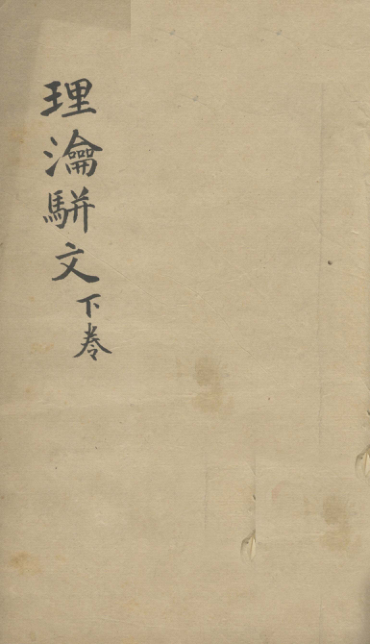 理瀹駢文下卷